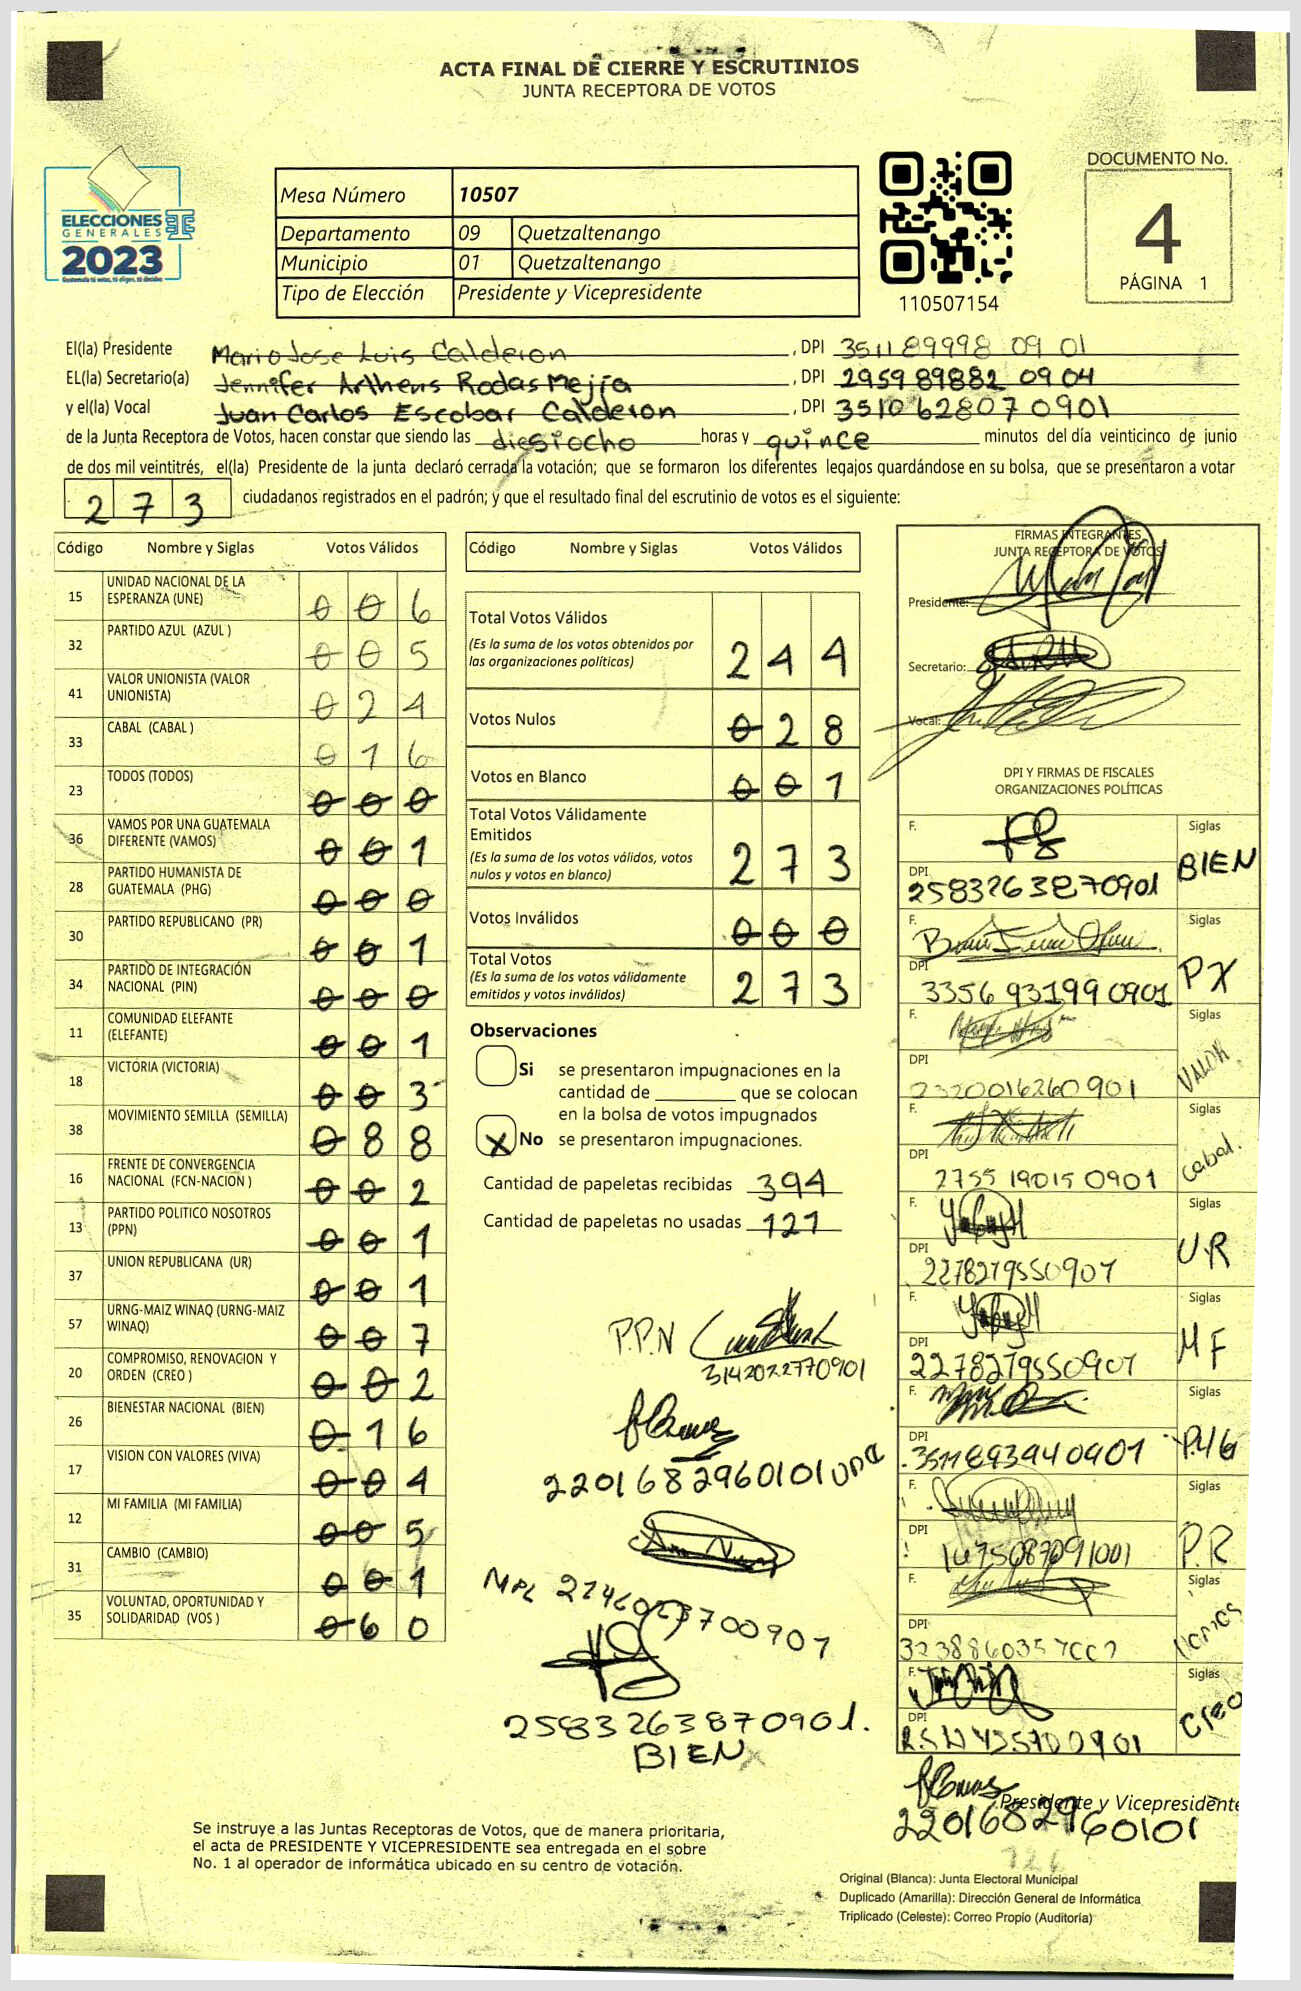 ACTA FINAL DE CIERRE Y ESCRUTINIOS
JUNTA RECEPTORA DE VOTOS
DOCUMENTO No.
4
PÁGINA 1
ELECCIONES
GENERALES
2023
Mesa Número 10507
Departamento 09 Quetzaltenango
Municipio 01 Quetzaltenango
Tipo de Elección Presidente y Vicepresidente
110507154
El(la) Presidente Mario Jose Luis Calderon, DPI 351189998 09 01
EL(la) Secretario(a) Jennifer Arlhens Rodas Mejía, DPI 2959 89882 0904
y el(la) Vocal Juan Carlos Escobar Calderon, DPI 3510 62807 0901
de la Junta Receptora de Votos, hacen constar que siendo las diesiocho horas y quince minutos del día veinticinco de junio
de dos mil veintitrés, el(la) Presidente de la junta declaró cerrada la votación; que se formaron los diferentes legajos guardándose en su bolsa, que se presentaron a votar
273 ciudadanos registrados en el padrón; y que el resultado final del escrutinio de votos es el siguiente:
Código Nombre y Siglas Votos Válidos
15 UNIDAD NACIONAL DE LA ESPERANZA (UNE) 0 0 6
32 PARTIDO AZUL (AZUL ) 0 0 5
41 VALOR UNIONISTA (VALOR UNIONISTA) 0 2 4
33 CABAL (CABAL ) 0 1 6
23 TODOS (TODOS) 0 0 0
36 VAMOS POR UNA GUATEMALA DIFERENTE (VAMOS) 0 0 1
28 PARTIDO HUMANISTA DE GUATEMALA (PHG) 0 0 0
30 PARTIDO REPUBLICANO (PR) 0 0 1
34 PARTIDO DE INTEGRACIÓN NACIONAL (PIN) 0 0 0
11 COMUNIDAD ELEFANTE (ELEFANTE) 0 0 1
18 VICTORIA (VICTORIA) 0 0 3
38 MOVIMIENTO SEMILLA (SEMILLA) 0 8 8
16 FRENTE DE CONVERGENCIA NACIONAL (FCN-NACION ) 0 0 2
13 PARTIDO POLITICO NOSOTROS (PPN) 0 0 1
37 UNION REPUBLICANA (UR) 0 0 1
57 URNG-MAIZ WINAQ (URNG-MAIZ WINAQ) 0 0 7
20 COMPROMISO, RENOVACION Y ORDEN (CREO ) 0 0 2
26 BIENESTAR NACIONAL (BIEN) 0 1 6
17 VISION CON VALORES (VIVA) 0 0 4
12 MI FAMILIA (MI FAMILIA) 0 0 5
31 CAMBIO (CAMBIO) 0 0 1
35 VOLUNTAD, OPORTUNIDAD Y SOLIDARIDAD (VOS ) 0 6 0
Código Nombre y Siglas Votos Válidos
Total Votos Válidos 2 4 4
(Es la suma de los votos obtenidos por
las organizaciones políticas)
Votos Nulos 0 2 8
Votos en Blanco 0 0 1
Total Votos Válidamente
Emitidos 2 7 3
(Es la suma de los votos válidos, votos
nulos y votos en blanco)
Votos Inválidos 0 0 0
Total Votos 2 7 3
(Es la suma de los votos válidamente
emitidos y votos inválidos)
Observaciones
Si se presentaron impugnaciones en la
cantidad de ________ que se colocan
en la bolsa de votos impugnados
X No se presentaron impugnaciones.
Cantidad de papeletas recibidas 394
Cantidad de papeletas no usadas 121
P.P.N
3142022770901
2201682960101
MPL
2583263870901.
BIEN
FIRMAS INTEGRANTES
JUNTA RECEPTORA DE VOTOS
Presidente:
Secretario:
Vocal:
DPI Y FIRMAS DE FISCALES
ORGANIZACIONES POLÍTICAS
F. Siglas BIEN
DPI 2583263870901
F. Siglas PX
DPI 3356 93199 0901
F. Siglas VALOR
DPI 2320016260901
F. Siglas Cabal.
DPI 2755 19015 0901
F. Siglas UR
DPI 2278279550901
F. Siglas MF
DPI 2278279550901
F. Siglas PHG
DPI 3511893940901
F. Siglas P.R
DPI 1475087091001
F. Siglas Vamos
DPI
F. Siglas Creo
DPI
Presidente y Vicepresidente
2201682960101
Se instruye a las Juntas Receptoras de Votos, que de manera prioritaria,
el acta de PRESIDENTE Y VICEPRESIDENTE sea entregada en el sobre
No. 1 al operador de informática ubicado en su centro de votación.
Original (Blanca): Junta Electoral Municipal
Duplicado (Amarilla): Dirección General de Informática
Triplicado (Celeste): Correo Propio (Auditoría)